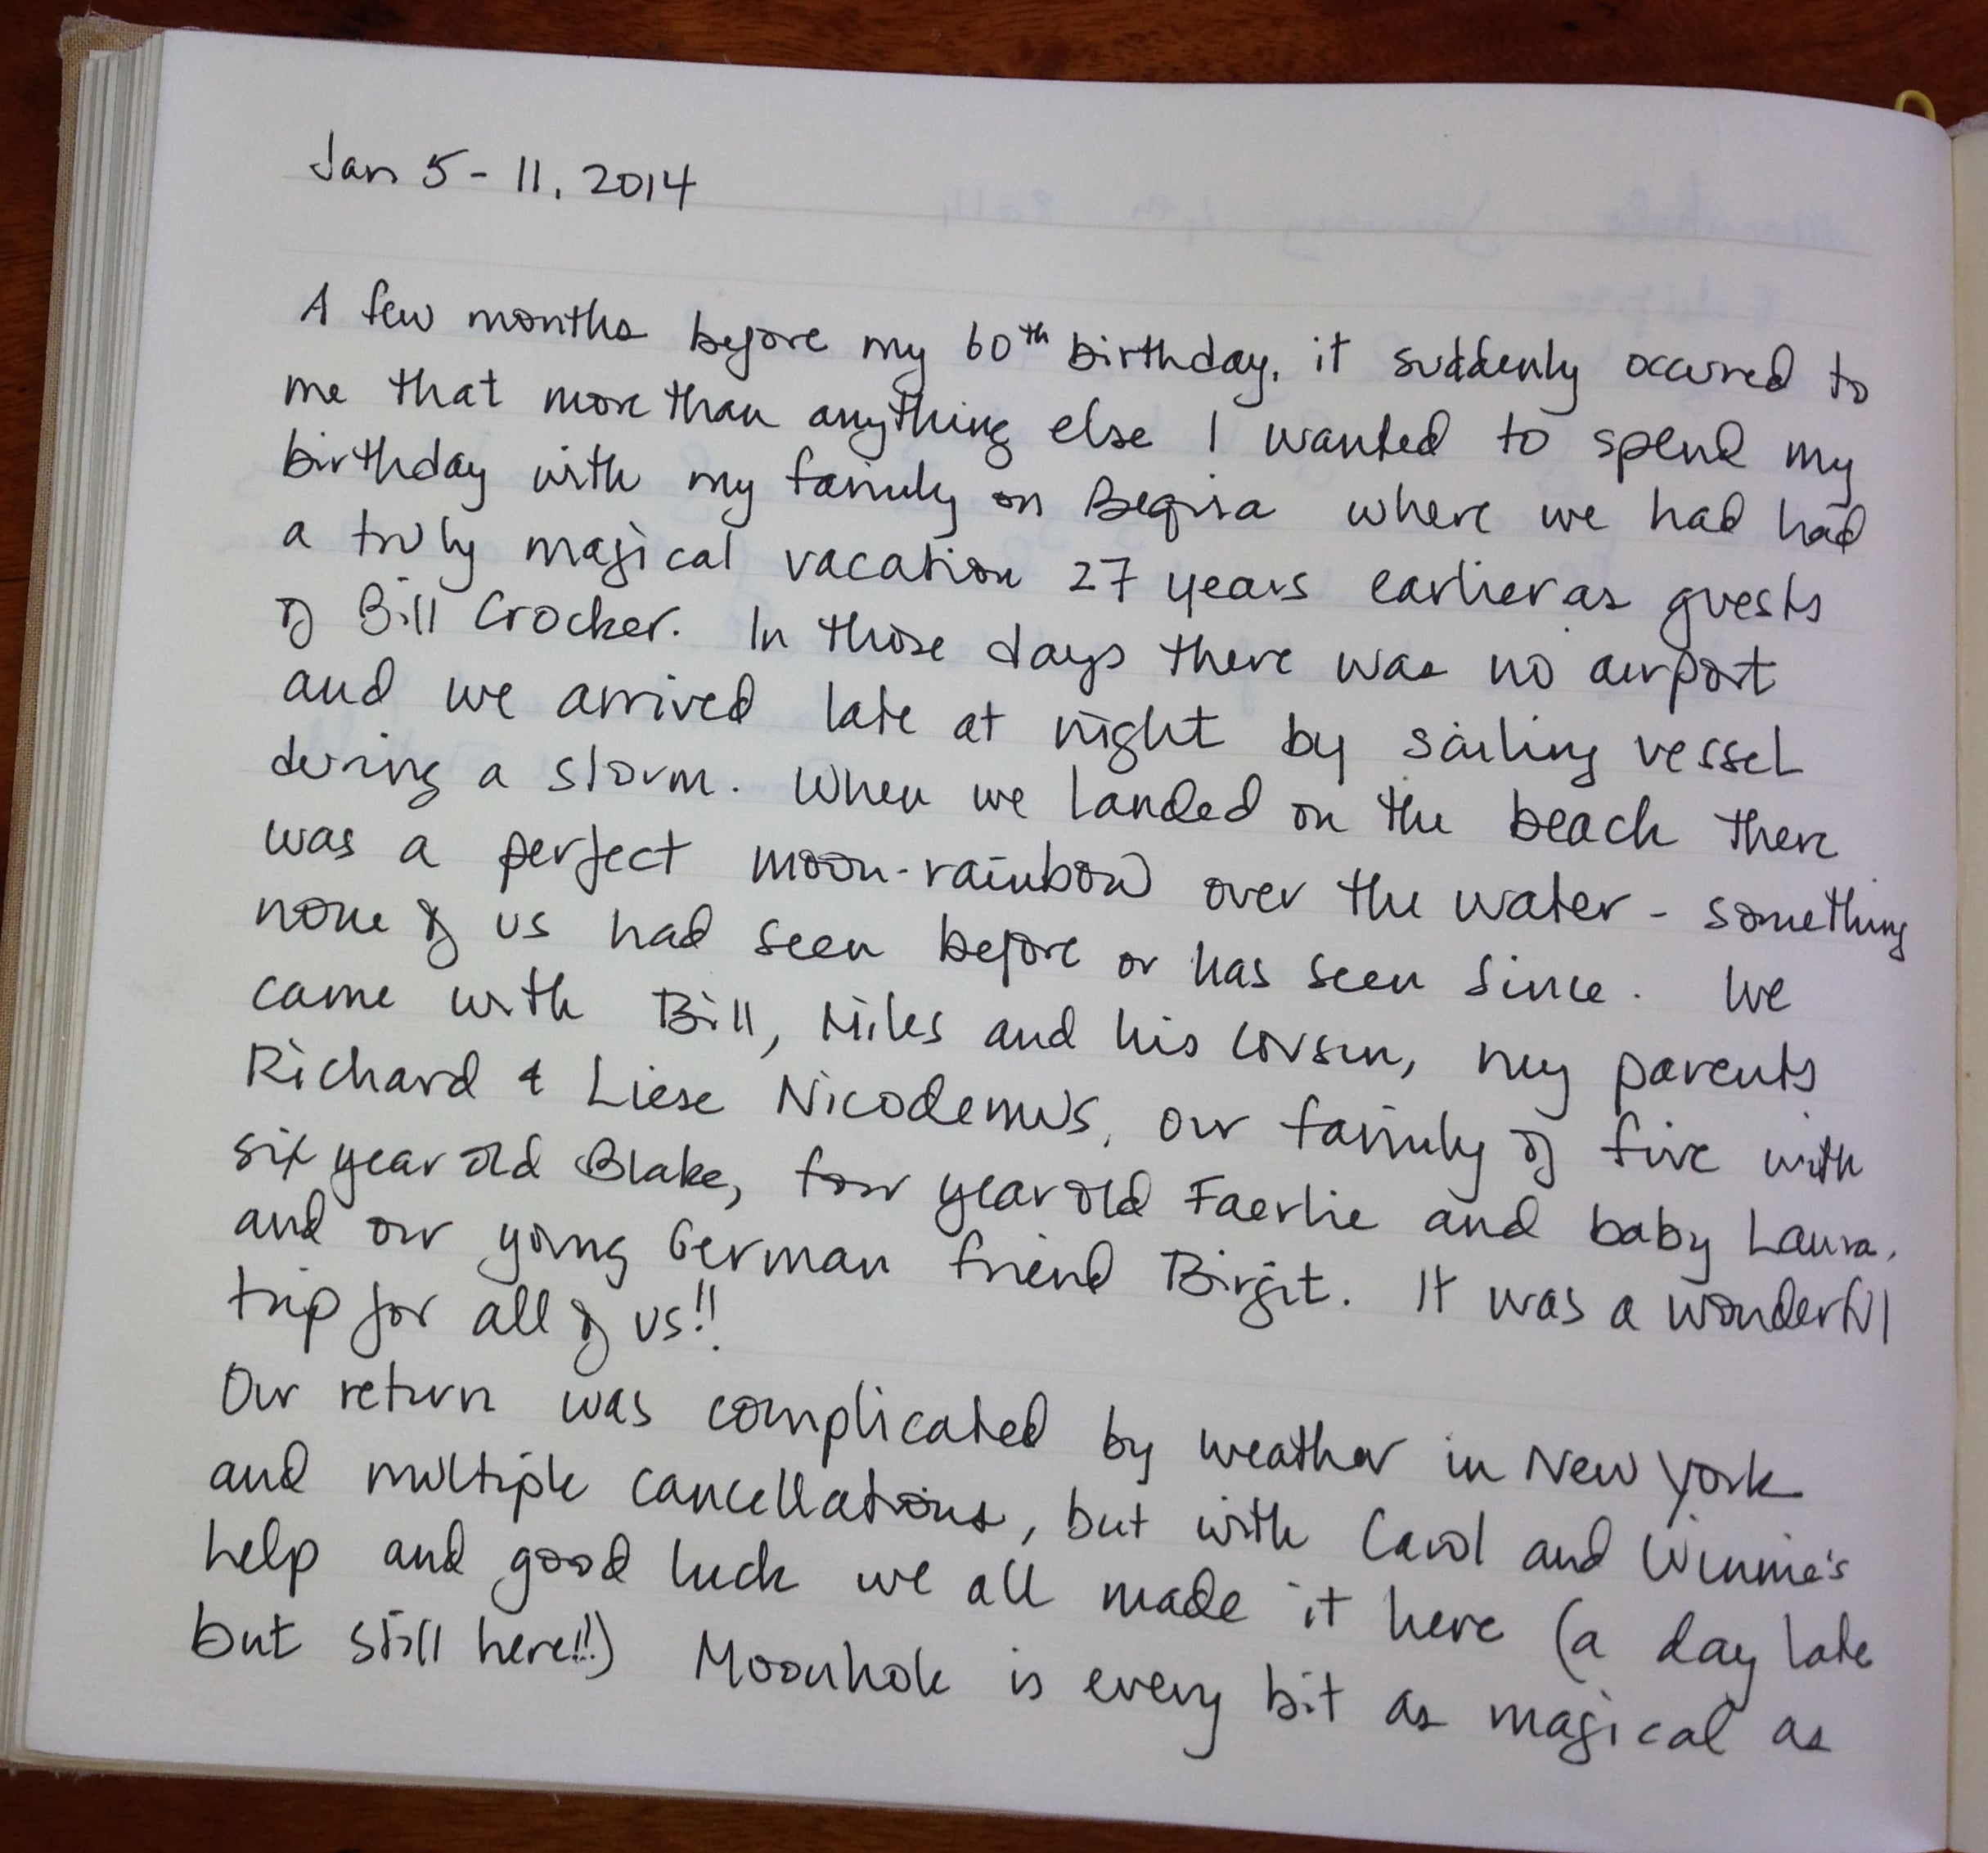 Jan 5 - 11, 2014
A few months before my 60th birthday, it suddenly occured to
me that more than anything else I wanted to spend my
birthday with my family on Beqisa where we had had
a truly magical vacation 27 years earlier as guests
of Bill Crocker. In those days there was no airport
and we arrived late at night by sailing vessel
during a storm. When we landed on the beach there
was a perfect moon-rainbow over the water - something
none of us had seen before or has seen since. We
came with Bill, Miles and his cousin, my parents
Richard & Liese Nicodemus, our family of five with
six year old Blake, four year old Faerlie and baby Laura,
and our young German friend Birgit. It was a wonderful
trip for all of us!!
Our return was complicated by weather in New York
and multiple cancellations, but with Carol and Winnie's
help and good luck we all made it here (a day late
but still here!!) Moonhole is every bit as magical as